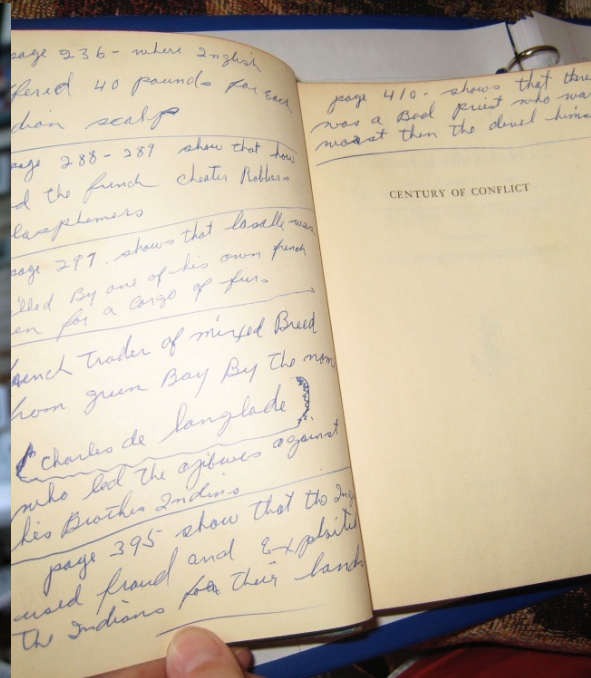 page 236 - where English
fered 40 pounds for each
dian scalp
page 288-289 show that how
d the french cheater Robbers
lasphemers
page 297. shows that lasalle was
illed By one of his own french
en for a cargo of furs
rench trader of mixed Breed
from green Bay By the nom
Charles de langlade
who led the ojibwes against
his Brothes Indins
page 395 show that the Ing
used fraud and Exploited
The Indians for their lands
page 410- shows that there
was a Bad priest who was
worst then the devel himse
CENTURY OF CONFLICT